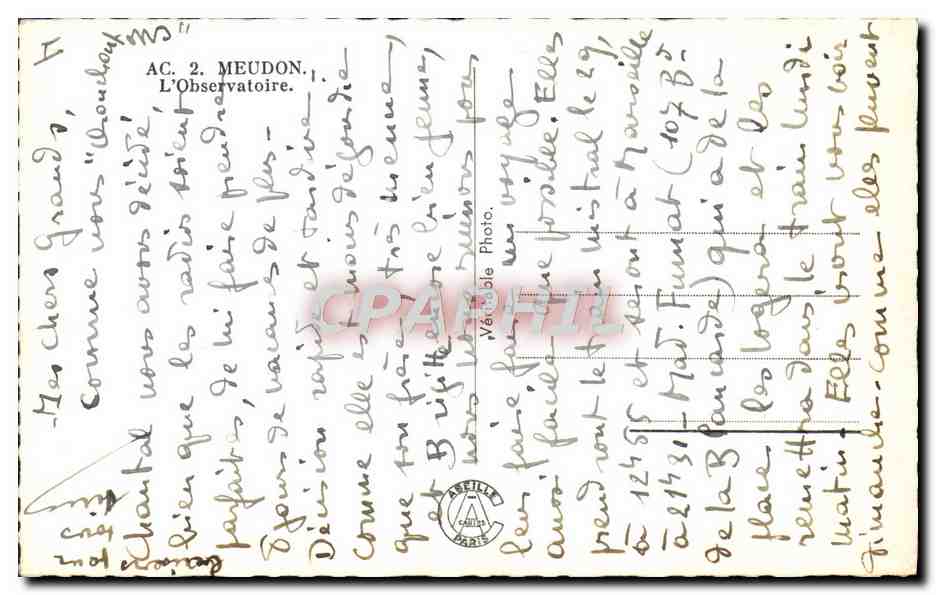 AC. 2. MEUDON.
L'Observatoire.
Mes chers grands,
Comme vous "chouchoux"
Chantal nous avons décidé,
bien que les radios soient
parfaites, de lui faire prendre
8 jours de vacances de plus -
Décision rapide et tardive,
comme elle est moins dégourdie
que ton frère, très
et Brigitte encore bien jeune,
nous
leur faire faire un voyage
aussi facile que possible. Elles
prendront le train mistral le 29,
à 12h 55 et seront à Marseille
à 21h 31 - Mad.
de la B qui a de la
place les logera et les
remettra dans le train lundi
matin Elles iront vous voir
dimanche. Comme elles peuvent
Véritable Photo.
ABEILLE
CARTES
PARIS
CPAPHIL